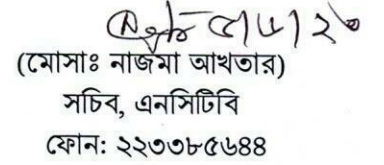 ৫/৬/২৩
(মোসাঃ নাজমা আখতার)
সচিব, এনসিটিবি
ফোন: ২২৩৩৮৫৬৪৪